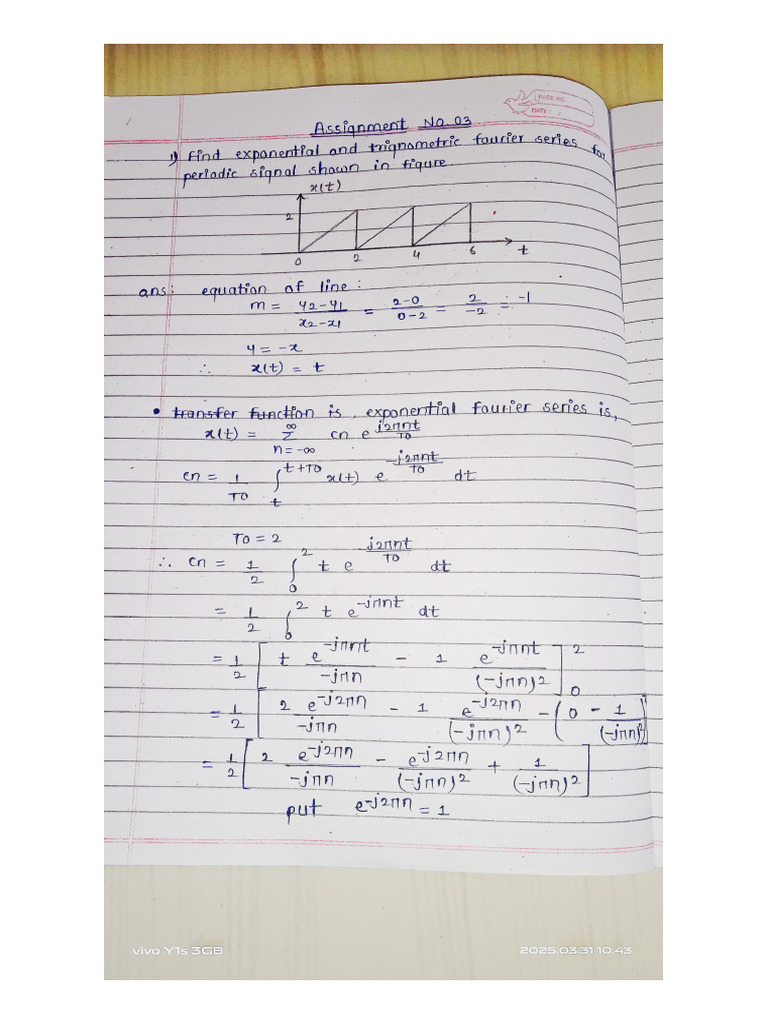 PAGE NO.
DATE:
Assignment No. 03
1) Find exponential and trignometric fourier series for
periodic signal shown in figure.
x(t)
2
0 2 4 6 t
ans: equation of line:
m = y2-y1/x2-x1 = 2-0/0-2 = 2/-2 = -1
y = -x
∴ x(t) = t
• transfer function is, exponential fourier series is,
x(t) = ∞Σn=-∞ cn e^j2πnt/T0
cn = 1/T0 ∫t^t+T0 x(t) e^-j2πnt/T0 dt
T0 = 2
∴ cn = 1/2 ∫0^2 t e^-j2πnt/T0 dt
= 1/2 ∫0^2 t e^-jπnt dt
= 1/2 [ t e^-jπnt/-jπn - 1 e^-jπnt/(-jπn)^2 ]0^2
= 1/2 [ 2 e^-j2πn/-jπn - 1 e^-j2πn/(-jπn)^2 - (0 - 1/(-jπn)^2) ]
= 1/2 [ 2 e^-j2πn/-jπn - e^-j2πn/(-jπn)^2 + 1/(-jπn)^2 ]
put e^-j2πn = 1
vivo Y1s 3GB
2025.03.31 10:43